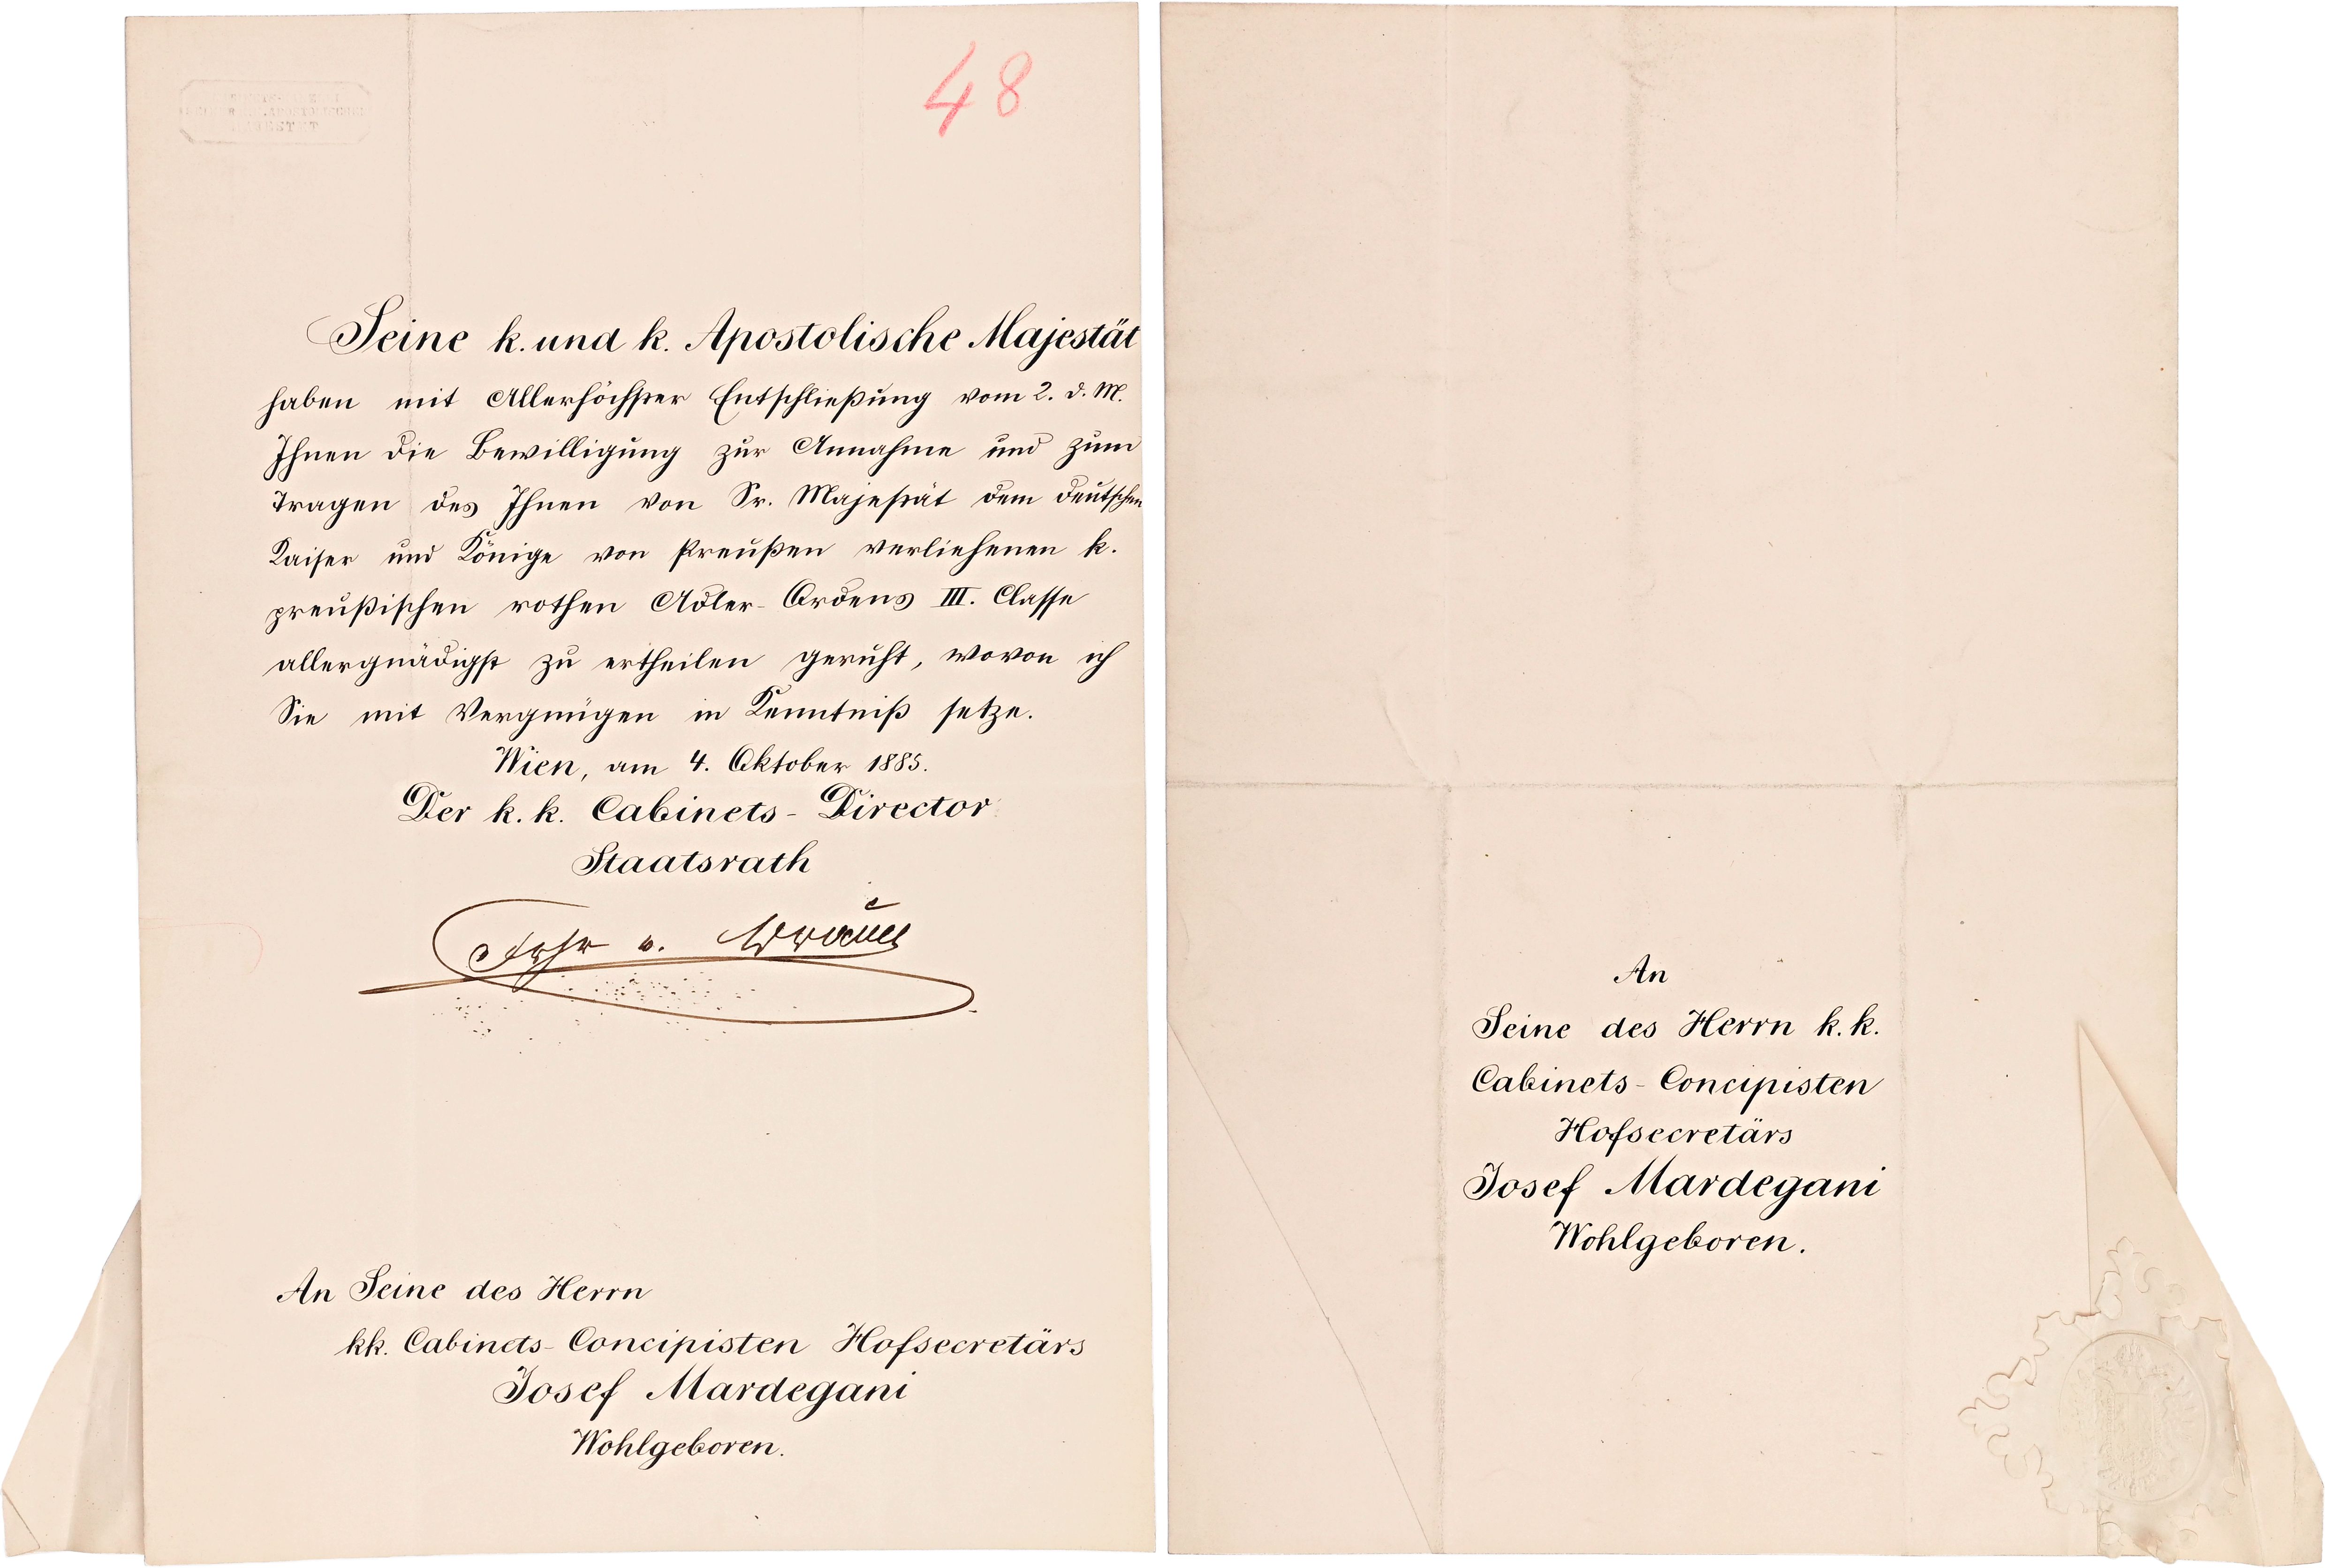 48
Seine k. und k. Apostolische Majestät
haben mit Allerhöchster Entschließung vom 2. d. M.
Ihnen die Bewilligung zur Annahme und zum
Tragen des Ihnen von Sr. Majestät dem deutschen
Kaiser und Könige von Preußen verliehenen k.
preußischen rothen Adler-Ordens III. Classe
allergnädigst zu ertheilen geruht, wovon ich
Sie mit Vergnügen in Kenntniß setze.
Wien, am 4. Oktober 1885.
Der k. k. Cabinets-Director
Staatsrath
Frhr v. Braun
An Seine des Herrn
kk. Cabinets-Concipisten Hofsecretärs
Josef Mardegani
Wohlgeboren.
An
Seine des Herrn k. k.
Cabinets-Concipisten
Hofsecretärs
Josef Mardegani
Wohlgeboren.